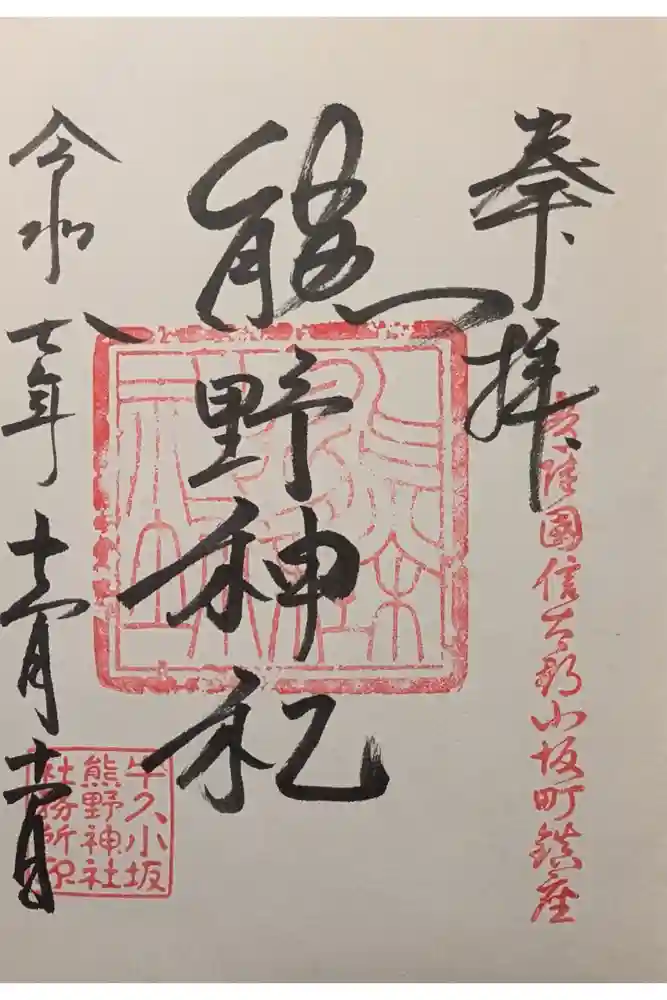 奉拝
常陸國信太郡小坂町鎮座
熊野神社
令和七年十一月十一日
牛久小坂
熊野神社
社務所印